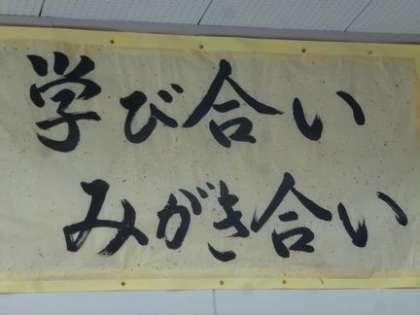 学び合い
みがき合い